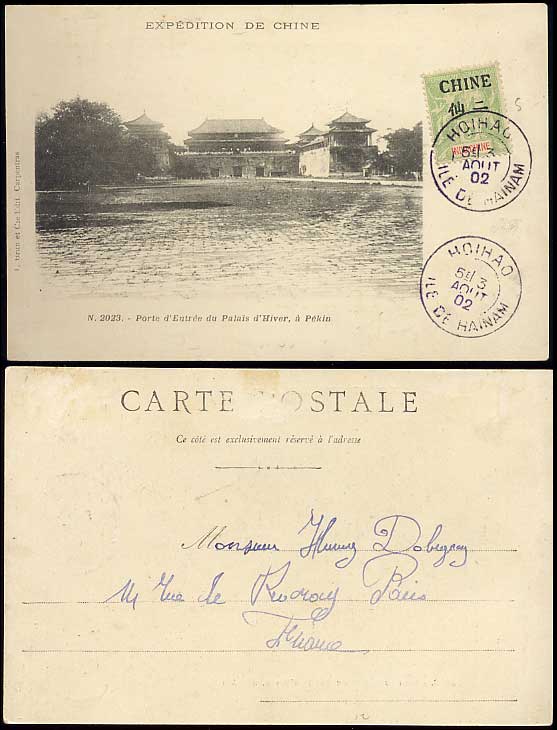 EXPÉDITION DE CHINE
CHINE
仙二
INDO-CHINE
HOIHAO
5E 3
AOUT
02
ILE DE HAINAM
HOIHAO
5E 3
AOUT
02
ILE DE HAINAM
Brun et Cie Edit. Carpentras
N. 2023. - Porte d'Entrée du Palais d'Hiver, à Pékin
CARTE POSTALE
Ce côté est exclusivement réservé à l'adresse
Monsieur
Rue de Paris
France